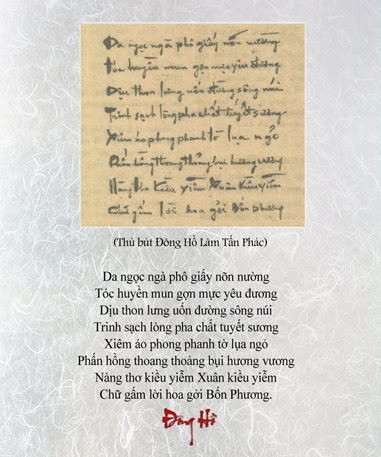 Da ngọc ngà phô giấy nõn nường
Tóc huyền mun gợn mực yêu đương
Dịu thon lưng uốn đường sông núi
Trinh sạch lòng pha chất tuyết sương
Xiêm áo phong phanh tờ lụa ngỏ
Phấn hồng thoang thoảng bụi hương vương
Nàng thơ kiều yiễm Xuân kiều yiễm
Chữ gấm lời hoa gởi Bốn Phương
(Thủ bút Đông Hồ Lâm Tấn Phác)
Da ngọc ngà phô giấy nõn nường
Tóc huyền mun gợn mực yêu đương
Dịu thon lưng uốn đường sông núi
Trinh sạch lòng pha chất tuyết sương
Xiêm áo phong phanh tờ lụa ngỏ
Phấn hồng thoang thoảng bụi hương vương
Nàng thơ kiều yiễm Xuân kiều yiễm
Chữ gấm lời hoa gởi Bốn Phương.
Đông Hồ